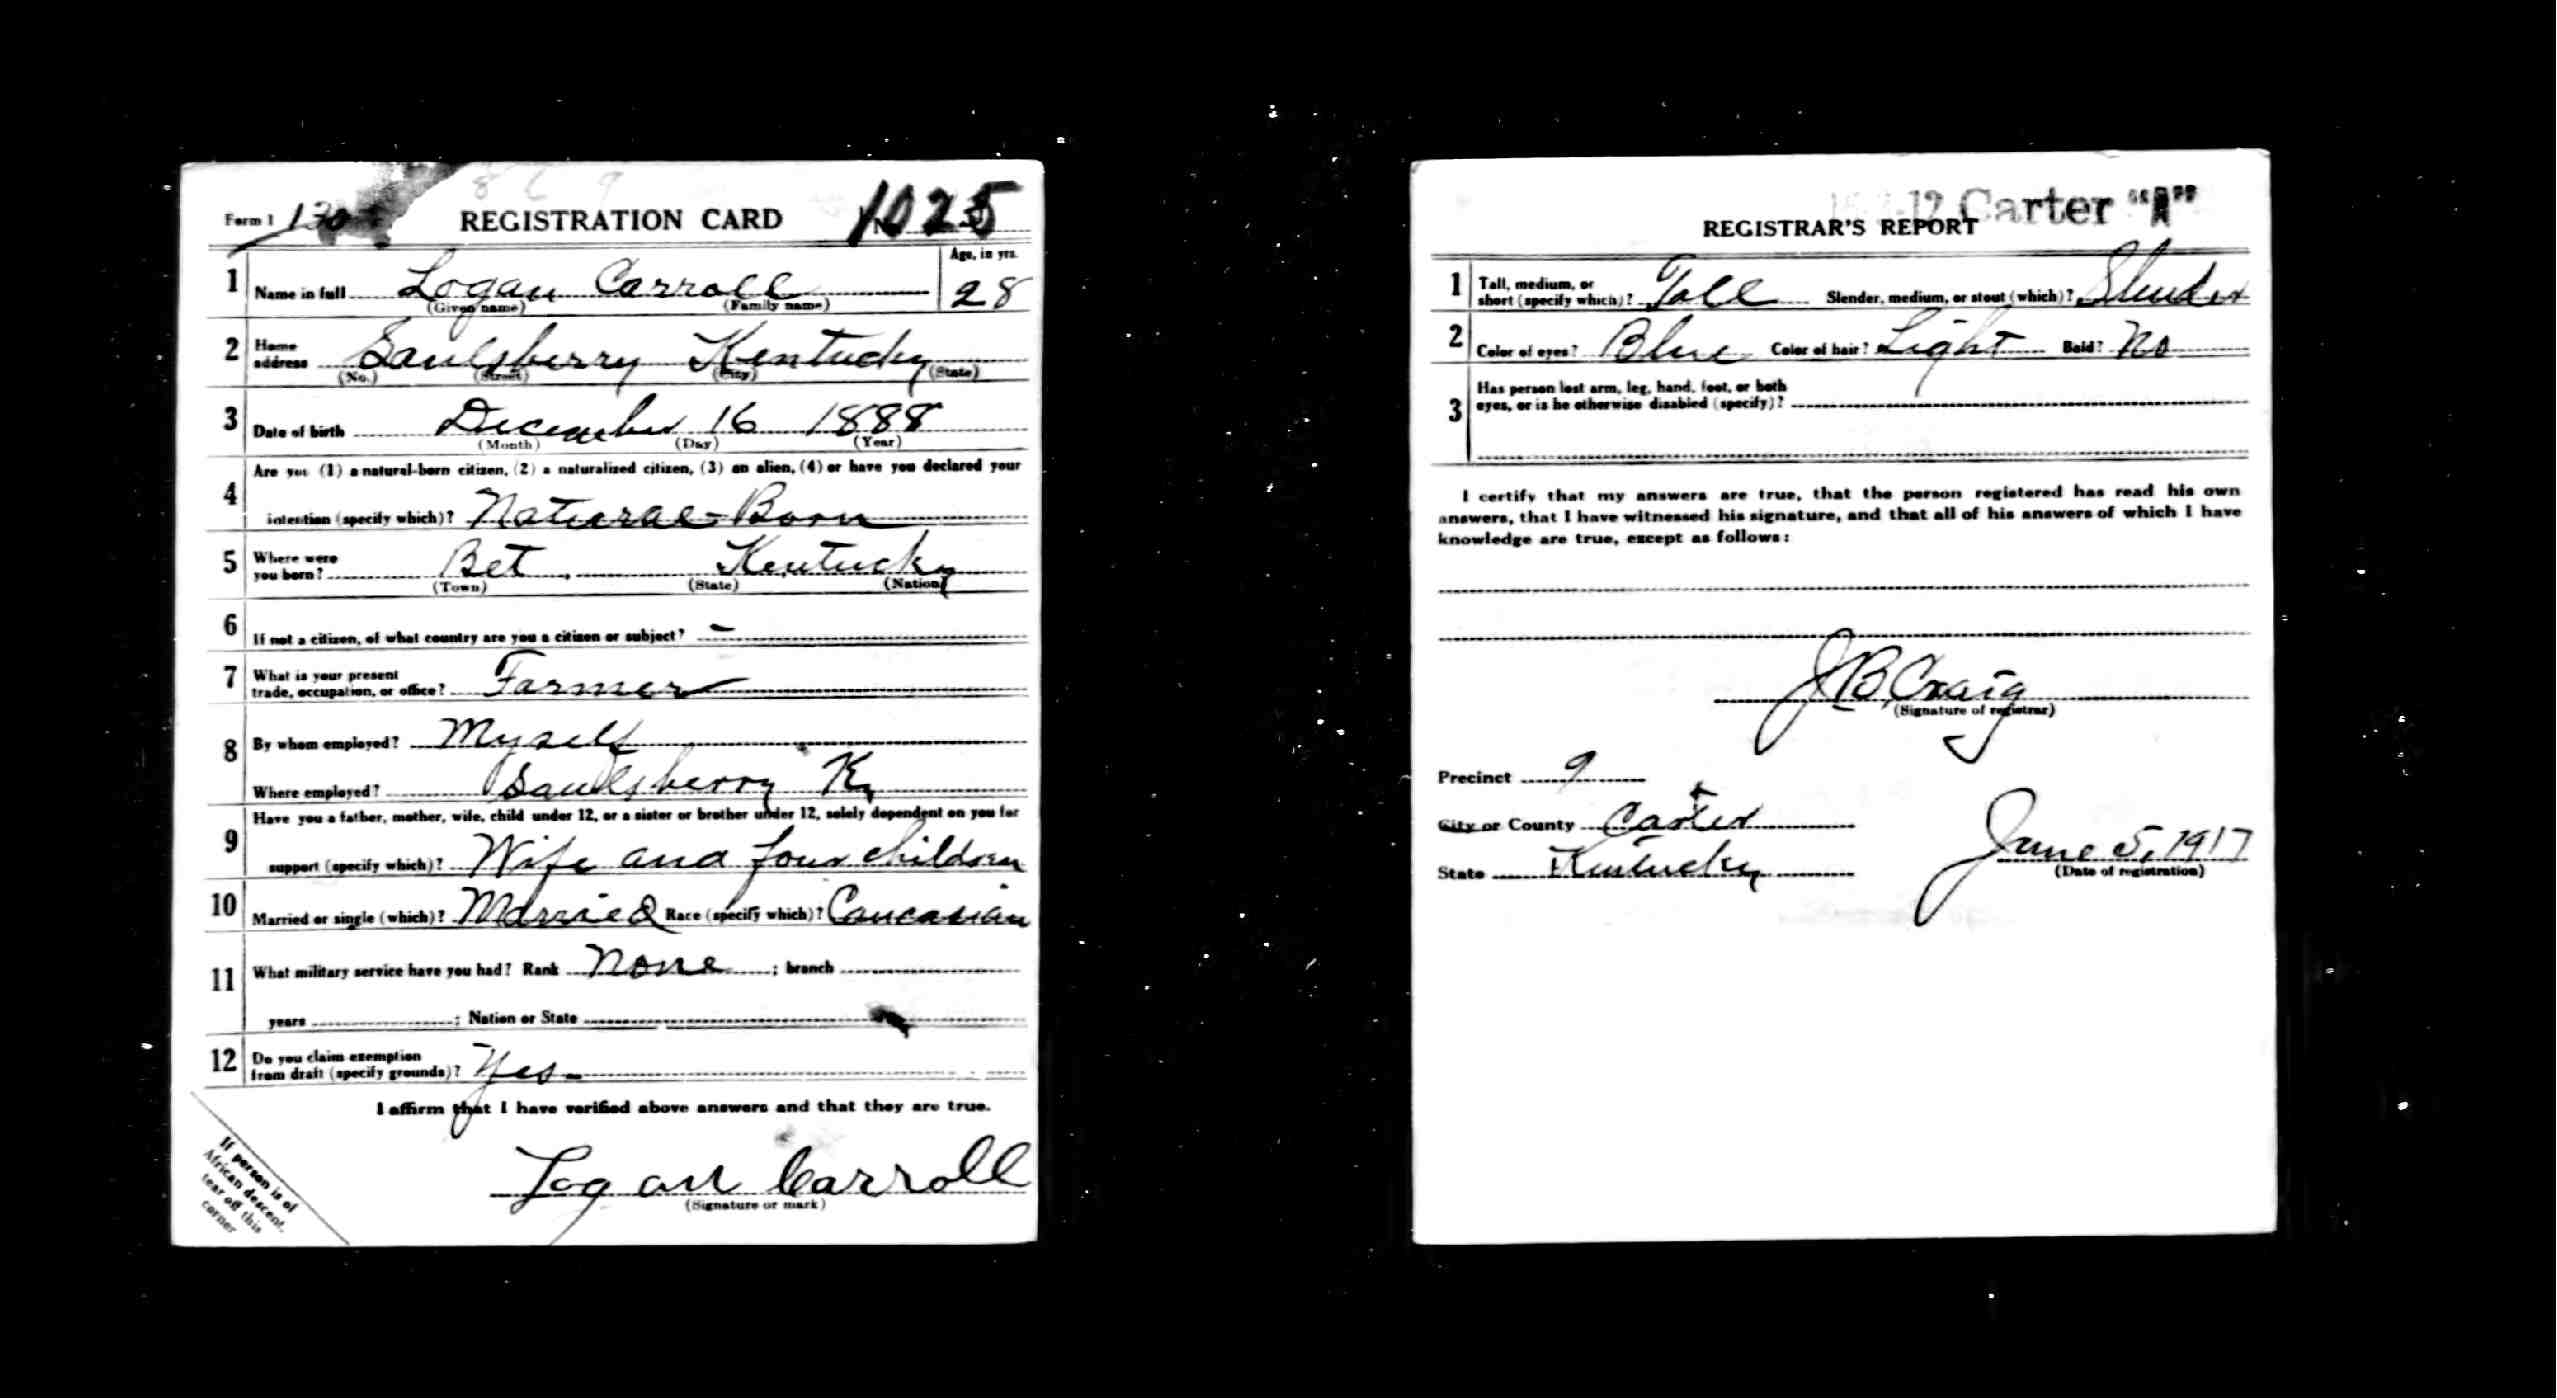 Form 1 130 REGISTRATION CARD No. 1025
1 Name in full Logan Carroll Age, in yrs. 28
(Given name) (Family name)
2 Home address Saulsberry Kentucky
(No.) (Street) (City) (State)
3 Date of birth December 16 1888
(Month) (Day) (Year)
4 Are you (1) a natural-born citizen, (2) a naturalized citizen, (3) an alien, (4) or have you declared your
intention (specify which)? Natural-Born
5 Where were you born? Bet, Kentucky
(Town) (State) (Nation)
6 If not a citizen, of what country are you a citizen or subject? -
7 What is your present trade, occupation, or office? Farmer
8 By whom employed? Myself
Where employed? Saulsberry Ky
9 Have you a father, mother, wife, child under 12, or a sister or brother under 12, solely dependent on you for
support (specify which)? Wife and four children
10 Married or single (which)? Married Race (specify which)? Caucasian
11 What military service have you had? Rank None ; branch
years ; Nation or State
12 Do you claim exemption from draft (specify grounds)? Yes-
I affirm that I have verified above answers and that they are true.
Logan Carroll
(Signature or mark)
If person is of
African descent,
tear off this
corner
12 Carter "A"
REGISTRAR'S REPORT
1 Tall, medium, or short (specify which)? Tall Slender, medium, or stout (which)? Slender
2 Color of eyes? Blue Color of hair? Light Bald? No
3 Has person lost arm, leg, hand, foot, or both
eyes, or is he otherwise disabled (specify)?
I certify that my answers are true, that the person registered has read his own
answers, that I have witnessed his signature, and that all of his answers of which I have
knowledge are true, except as follows:
J B Craig
(Signature of registrar)
Precinct 9
City or County Carter
State Kentucky June 5, 1917
(Date of registration)